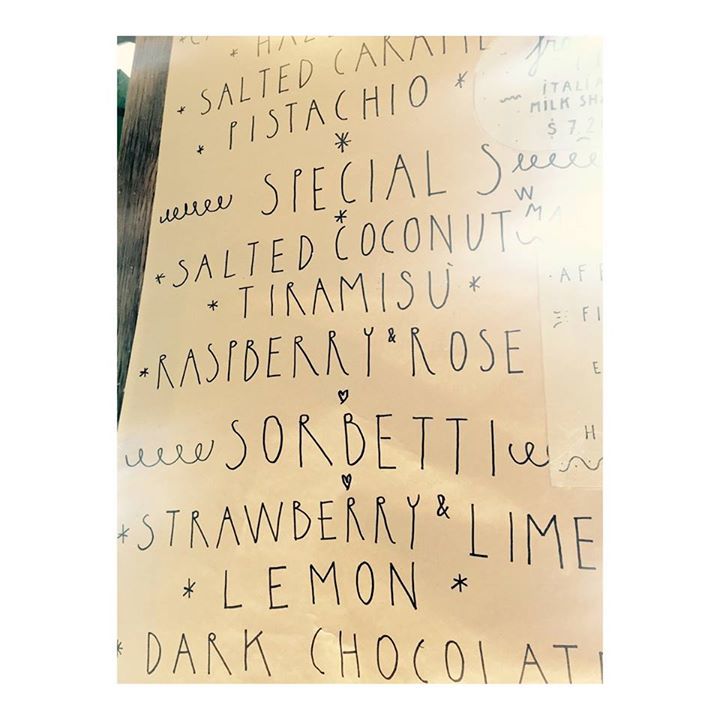 SALTED CARAMEL
PISTACHIO
SPECIALS
SALTED COCONUT
TIRAMISÙ
RASPBERRY & ROSE
SORBETTI
STRAWBERRY & LIME
LEMON
DARK CHOCOLATE
ITALIA
MILK SHA
$ 7.2
W
MA
AFF
FI
E
H